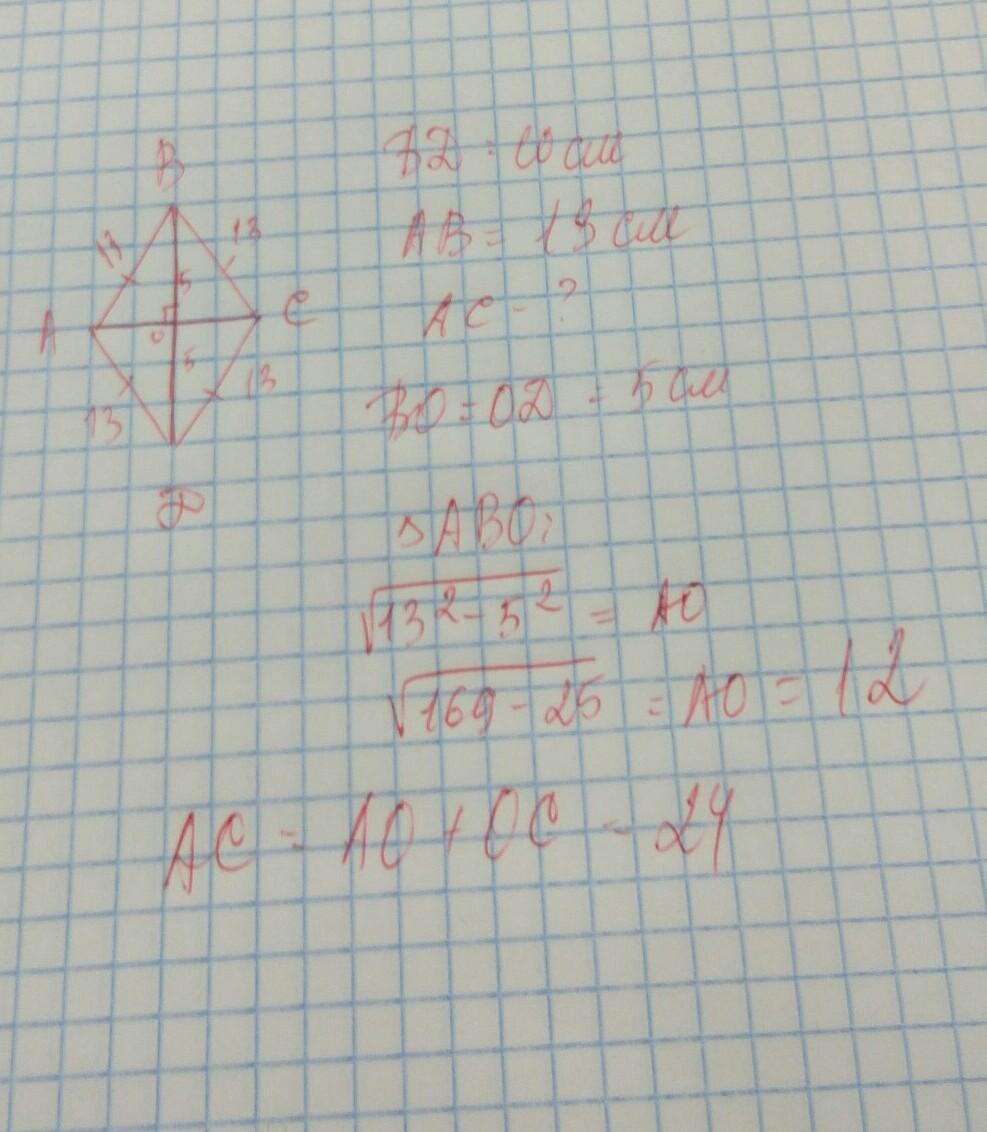 B
13
13
5
A
O
C
5
13
13
D
BD = 10 см
AB = 13 см
AC - ?
BO = OD = 5 см
△ABO:
√13² - 5² = AO
√169 - 25 = AO = 12
AC = AO + OC = 24